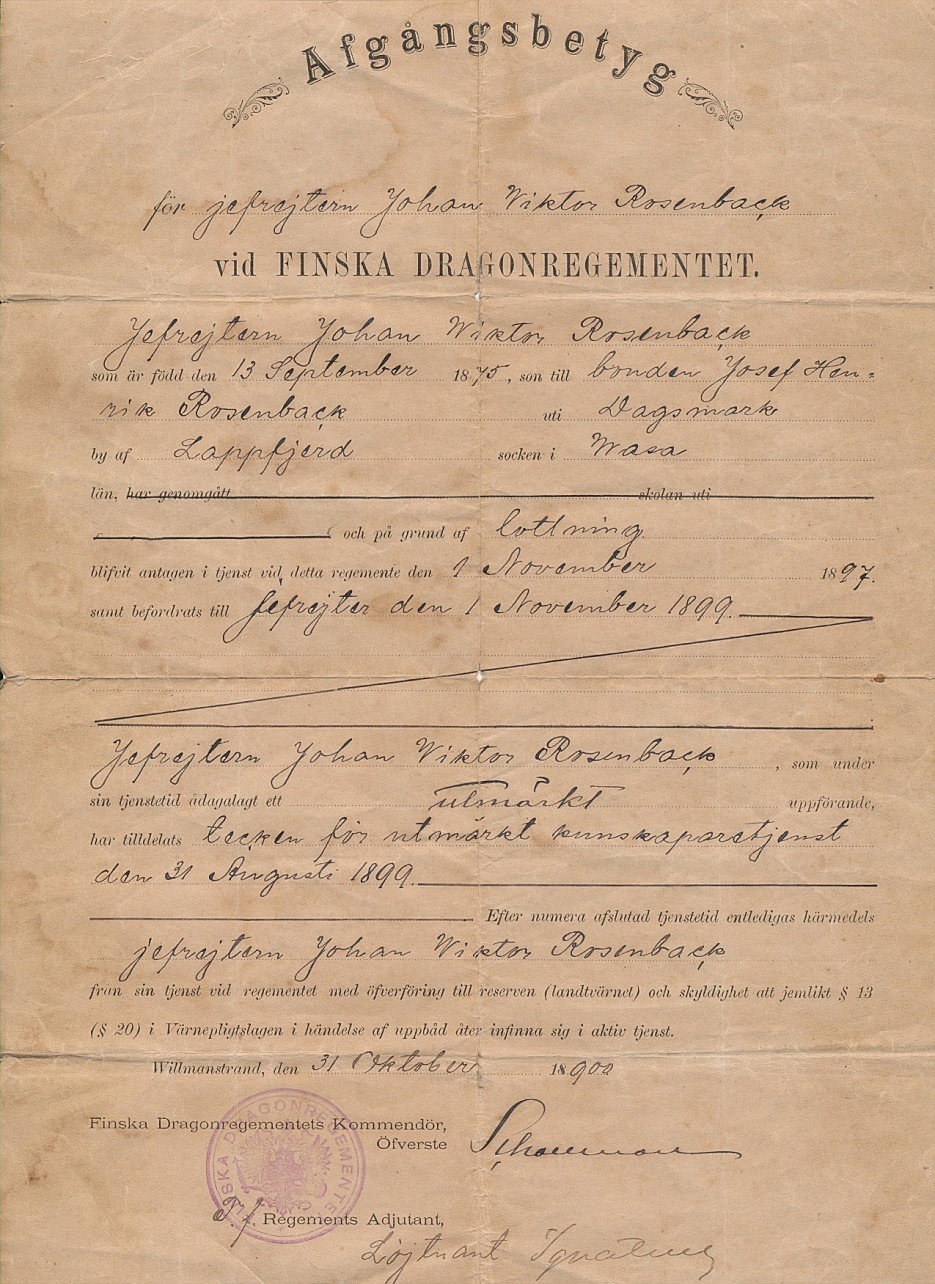 Afgångsbetyg
för jefrejtern Johan Wiktor Rosenback
vid FINSKA DRAGONREGEMENTET.
Jefrejtern Johan Wiktor Rosenback
som är född den 13 September 1875, son till bonden Josef Hen=
rik Rosenback uti Dagsmark
by af Lappfjerd socken i Wasa
län, har genomgått skolan uti
och på grund af lottning
blifvit antagen i tjenst vid detta regemente den 1 November 1897.
samt befordrats till jefrejter den 1 November 1899.
Jefrejtern Johan Wiktor Rosenback, som under
sin tjenstetid ådagalagt ett utmärkt uppförande,
har tilldelats tecken för utmärkt kunskaparetjenst
den 31 Augusti 1899.
Efter numera afslutad tjenstetid entledigas härmedels
jefrejtern Johan Wiktor Rosenback
från sin tjenst vid regementet med öfverföring till reserven (landtvärnet) och skyldighet att jemlikt § 13
(§ 20) i Värnepligtslagen i händelse af uppbåd åter infinna sig i aktiv tjenst.
Willmanstrand, den 31 Oktober 18900
Finska Dragonregementets Kommendör,
Öfverste Schauman
FINSKA DRAGONREGEMENTE
T. f. Regements Adjutant,
Löjtnant Ignatius